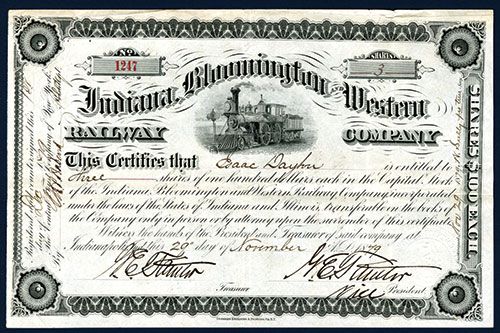 No.
1247
SHARES
3
Indiana, Bloomington and Western
RAILWAY COMPANY
This Certifies that Isaac Dayton is entitled to
Three shares of one hundred dollars each in the Capital Stock
of the Indiana, Bloomington and Western Railway Company, incorporated
under the laws of the States of Indiana and Illinois, transferable on the books of the
Company only in person or by attorney upon the surrender of this certificate.
Witness the hands of the President and Treasurer of said company at
Indianapolis this 29th day of November 1879
Treasurer
Vice President.
SHARES $100 EACH